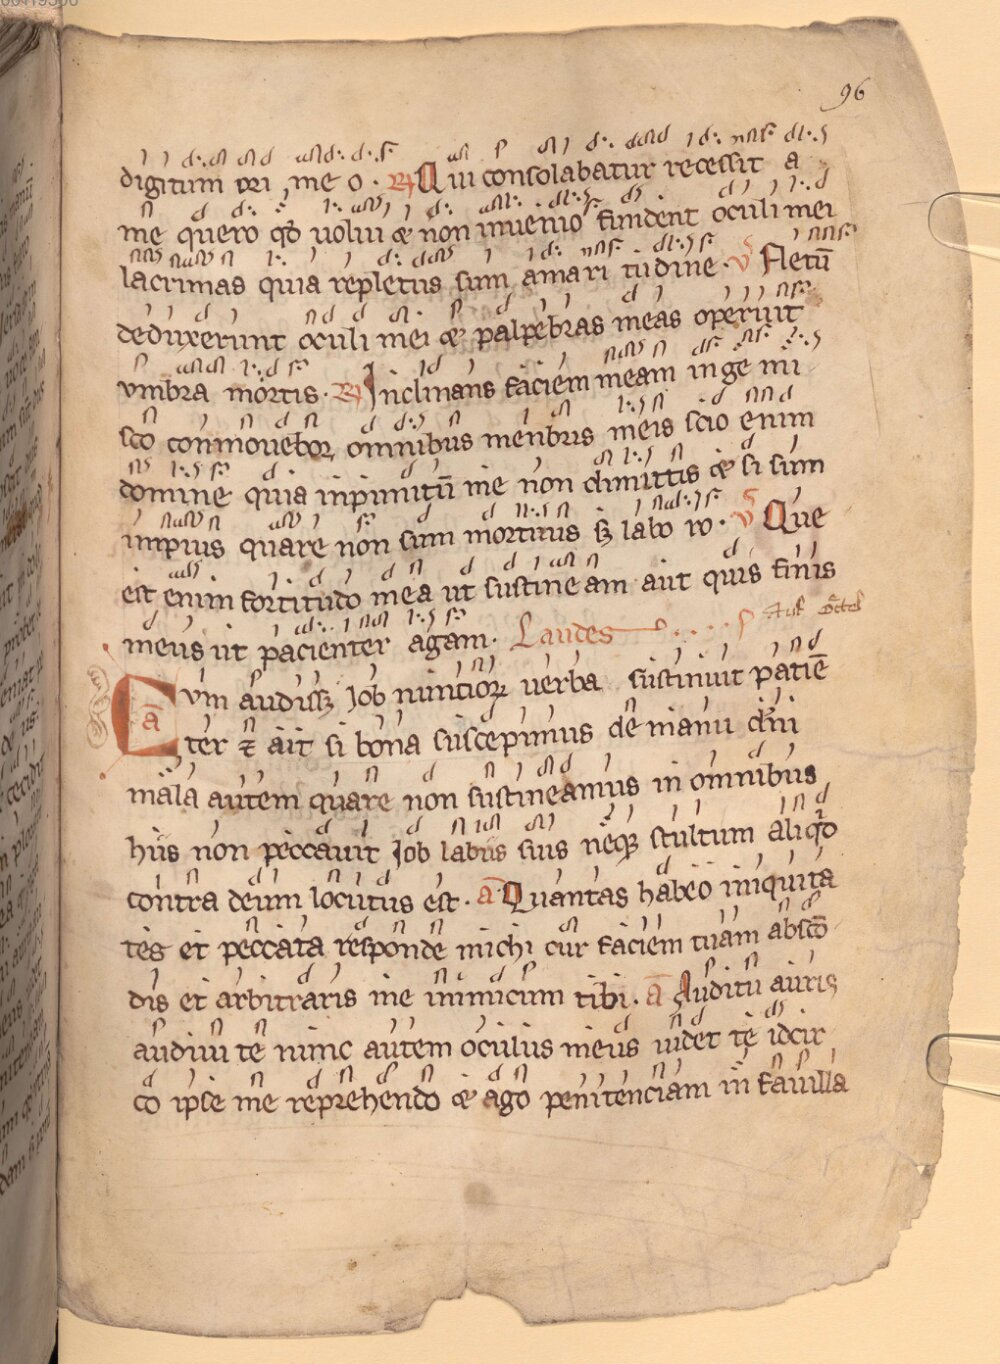 96
digitum ori me o. R Qui consolabatur recessit a
me quero qd volui & non invenio fundent oculi mei
lacrimas quia repletus sum amari tudine. v Fletū
deduxerunt oculi mei & palpebras meas operuit
umbra mortis. R Inclinans faciem meam inge mi
sco conmovebor omnibus menbris meis scio enim
domine quia inpunitū me non dimittis & si sum
impius quare non sum mortuus sꝫ labo ro. v Que
est enim fortitudo mea ut sustine am aut quis finis
meus ut pacienter agam. Laudes
Cum audissꝫ Job nuntioꝝ verba sustinuit patiē
ter ⁊ ait si bona suscepimus de manu dn̄i
mala autem quare non sustineamus in omnibus
hiis non peccavit Job labiis suis neqꝫ stultum aliqd
contra deum locutus est. a Quantas habeo iniquita
tes et peccata responde michi cur faciem tuam absco
dis et arbitraris me inimicum tibi. a Auditu auris
audivi te nunc autem oculus meus videt te idcir
co ipse me reprehendo & ago penitenciam in favilla